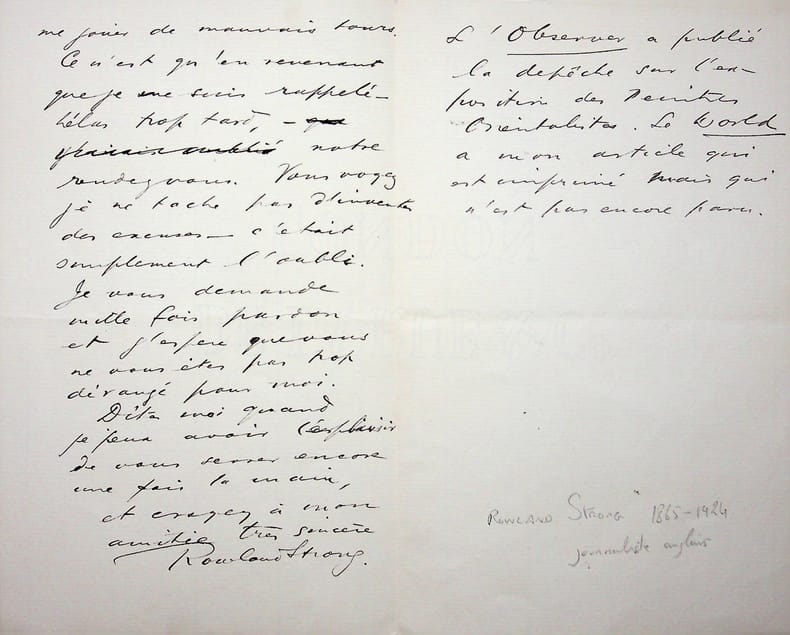 me jouer de mauvais tours.
Ce n'est qu'en revenant
que je me suis rappelé –
hélas trop tard, – que
j'avais oublié notre
rendezvous. Vous voyez
je ne tache pas d'inventer
des excuses – c'était
simplement l'oubli.
Je vous demande
mille fois pardon
et j'espère que vous
ne vous êtes pas trop
dérangé pour moi.
Dites moi quand
je peux avoir le plaisir
de vous serrer encore
une fois la main,
et croyez à mon
amitié très sincère
Rowland Strong.
L'Observer a publié
la depêche sur l'ex-
position des Peintres
Orientalistes. Le World
a mon article qui
est imprimé mais qui
n'est pas encore paru.
Rowland Strong" 1865-1924
journaliste anglais